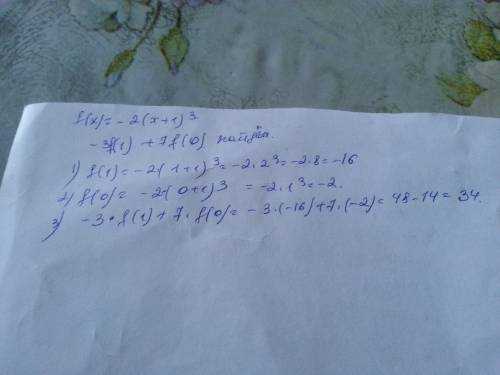 f(x) = -2(x+1)³
-3f(1) + 7f(0) найдём.
1) f(1) = -2·(1+1)³ = -2·2³ = -2·8 = -16
2) f(0) = -2·(0+1)³ = -2·1³ = -2.
3) -3·f(1) + 7·f(0) = -3·(-16) + 7·(-2) = 48 - 14 = 34.